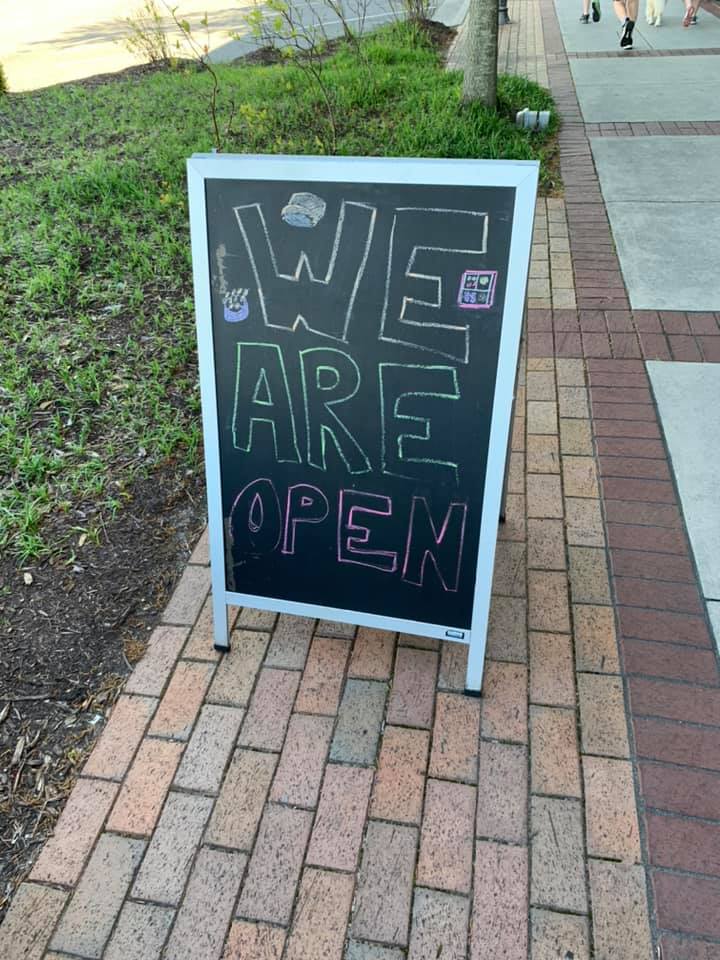 WE
ARE
OPEN